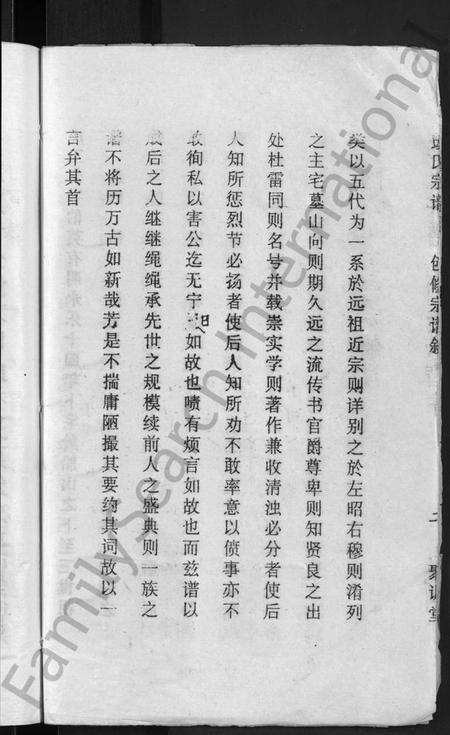 类以五代为一系於远祖近宗则详别之於左昭右穆则淆列
之主宅墓山向则期久远之流传书官爵尊卑则知贤良之出
处杜雷同则名号并载崇实学则著作兼收清浊必分者使后
人知所惩烈节必扬者使后人知所劝不敢率意以偾事亦不
敢徇私以害公迄无宁如故也啧有烦言如故也而兹谱以
后之人继继绳绳承先世之规模续前人之盛典则一族之
谱不将历万古如新哉芳是不揣庸陋撮其要约其词故以一
言弁其首
氏宗谱 修宗谱叙 二 堂
FamilySearch International